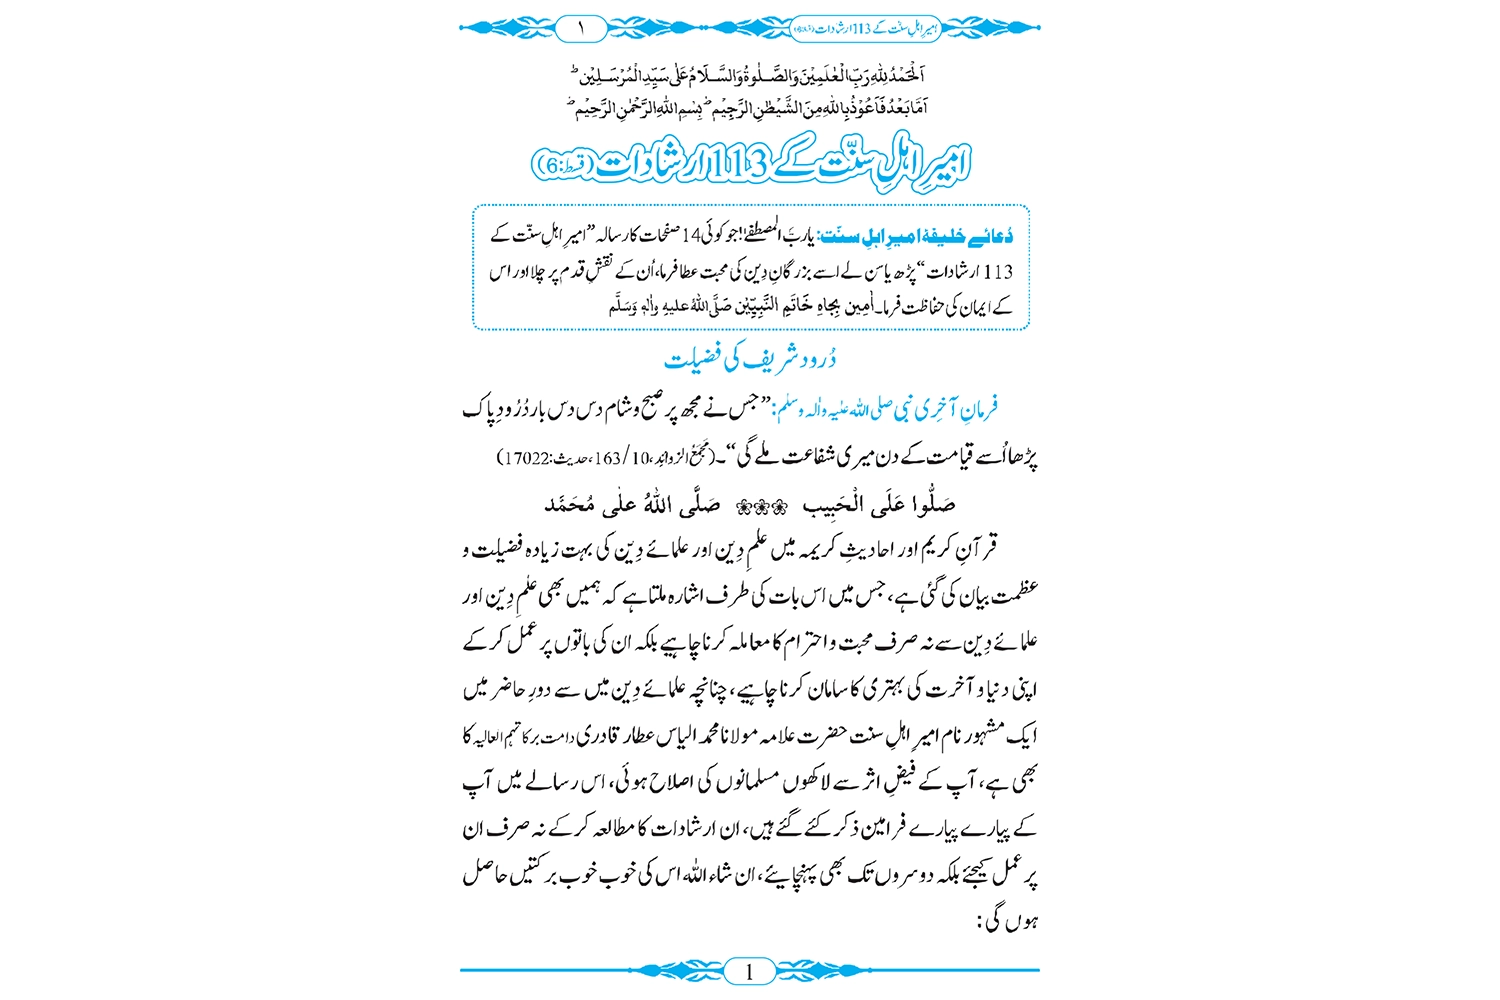 امیرِ اہلِ سنّت کے 113 ارشادات (قسط:6)
۱
اَلْحَمْدُ لِلّٰہِ رَبِّ الْعٰلَمِیْنَ وَالصَّلٰوۃُ وَالسَّلَامُ عَلٰی سَیِّدِ الْمُرْسَلِیْن ؕ
اَمَّا بَعْدُ فَاَعُوْذُ بِاللّٰہِ مِنَ الشَّیْطٰنِ الرَّجِیْم ؕ بِسْمِ اللّٰہِ الرَّحْمٰنِ الرَّحِیْم ؕ
امیرِ اہلِ سنّت کے 113 ارشادات (قسط:6)
دُعائے خلیفۂ امیرِ اہلِ سنّت: یاربَّ المصطفےٰ! جو کوئی 14 صفحات کا رسالہ ”امیرِ اہلِ سنّت کے
113 ارشادات“ پڑھ یا سن لے اسے بزرگانِ دِین کی محبت عطا فرما، اُن کے نقشِ قدم پر چلا اور اس
کے ایمان کی حفاظت فرما۔ اٰمِین بِجاہِ خَاتَمِ النَّبِیّیٖن صَلَّی اللہُ علیهِ واٰلهٖ وَسَلَّم
دُرود شریف کی فضیلت
فرمانِ آخِری نبی صلی اللہ علیہ واٰلہٖ وسلم: ”جس نے مجھ پر صبح و شام دس دس بار دُرُودِ پاک
پڑھا اُسے قیامت کے دن میری شفاعت ملے گی“۔ (مَجْمَعُ الزوائد، 10/163، حدیث: 17022)
صَلُّوا عَلَی الْحَبِیب ❀❀❀ صَلَّی اللّٰہُ علٰی مُحَمَّد
قرآنِ کریم اور احادیثِ کریمہ میں علمِ دِین اور علمائے دِین کی بہت زیادہ فضیلت و
عظمت بیان کی گئی ہے، جس میں اس بات کی طرف اشارہ ملتا ہے کہ ہمیں بھی علمِ دِین اور
علمائے دِین سے نہ صرف محبت و احترام کا معاملہ کرنا چاہیے بلکہ ان کی باتوں پر عمل کرکے
اپنی دنیا و آخرت کی بہتری کا سامان کرنا چاہیے، چنانچہ علمائے دِین میں سے دورِ حاضر میں
ایک مشہور نام امیرِ اہلِ سنت حضرت علامہ مولانا محمد الیاس عطار قادری دامت برکاتہم العالیہ کا
بھی ہے، آپ کے فیضِ اثر سے لاکھوں مسلمانوں کی اصلاح ہوئی، اس رسالے میں آپ
کے پیارے پیارے فرامین ذکر کئے گئے ہیں، ان ارشادات کا مطالعہ کرکے نہ صرف ان
پر عمل کیجئے بلکہ دوسروں تک بھی پہنچایئے، ان شاء اللہ اس کی خوب خوب برکتیں حاصل
ہوں گی:
1